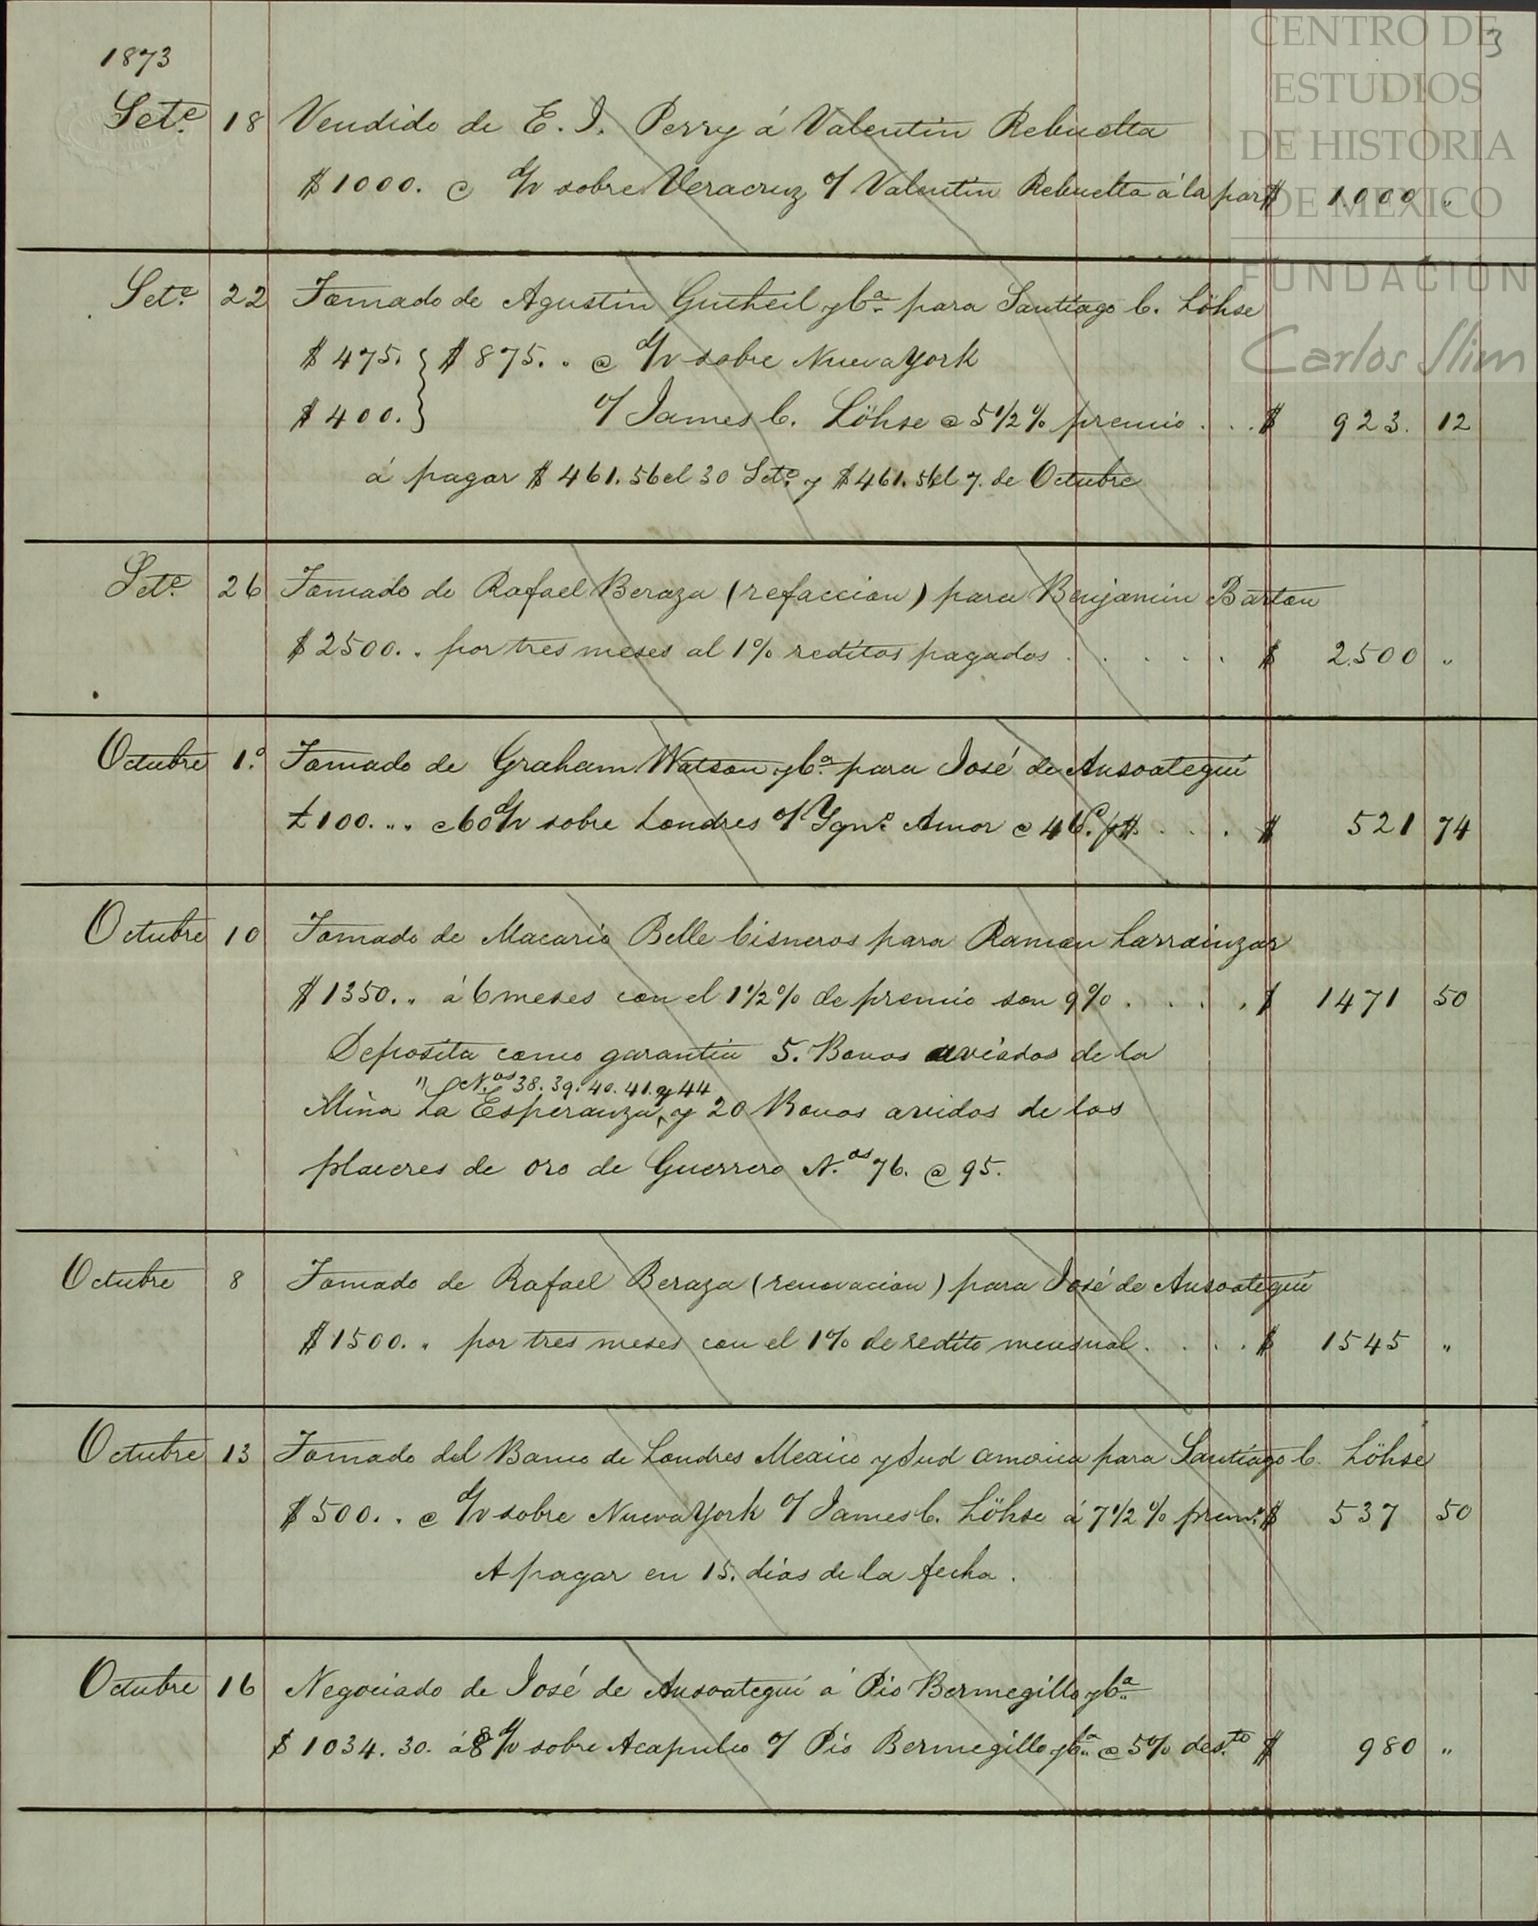 3
CENTRO DE
ESTUDIOS
DE HISTORIA
DE MÉXICO
FUNDACIÓN
Carlos Slim
1873
Sete. 18 Vendido de E. J. Perry á Valentin Rebuelta
$1000. @ d/v sobre Veracruz o/ Valentin Rebuelta á la par $ 1.000 "
Sete. 22 Tomado de Agustin Gutheil y Ca. para Santiago C. Löhse
$475. } $875. . @ d/v sobre Nueva York
$400. } o/ James C. Löhse @ 5 1/2 % premio . . . $ 923. 12
á pagar $461.56 el 30 Sete. y $461.56 el 7. de Octubre
Sete. 26 Tomado de Rafael Beraza (refaccion) para Benjamin Barton
$2500. . por tres meses al 1% reditos pagados . . . . . . $ 2.500 "
Octubre 1.º Tomado de Graham Watson y Ca. para José de Ansoategui
£100. .. @ 60 d/v sobre Londres o/ Ygno. Amor @ 46. p $. . . . $ 521 74
Octubre 10 Tomado de Macario Belle Cisneros para Ramon Larrainzar
$1350. . á 6 meses con el 1 1/2 % de premio son 9% . . . . $ 1471 50
Deposita como garantia 5. Bonos aviados de la
Nos. 38. 39. 40. 41. y 44
Mina "La Esperanza, y 20 Bonos avidos de los
placeres de oro de Guerrero N.os 76. @ 95.
Octubre 8 Tomado de Rafael Beraza (renovacion) para José de Ansoategui
$1500. . por tres meses con el 1% de redito mensual . . . . $ 1545 "
Octubre 13 Tomado del Banco de Londres Mexico y Sud America para Santiago C. Löhse
$500. . @ d/v sobre Nueva York o/ James C. Löhse á 7 1/2 % prem.o $ 537 50
A pagar en 15. dias de la fecha.
Octubre 16 Negociado de José de Ansoategui á Pio Bermegillo y Ca.
$1034. 30. á 8 d/v sobre Acapulco o/ Pio Bermegillo y Ca. @ 5% des.to $ 980 "